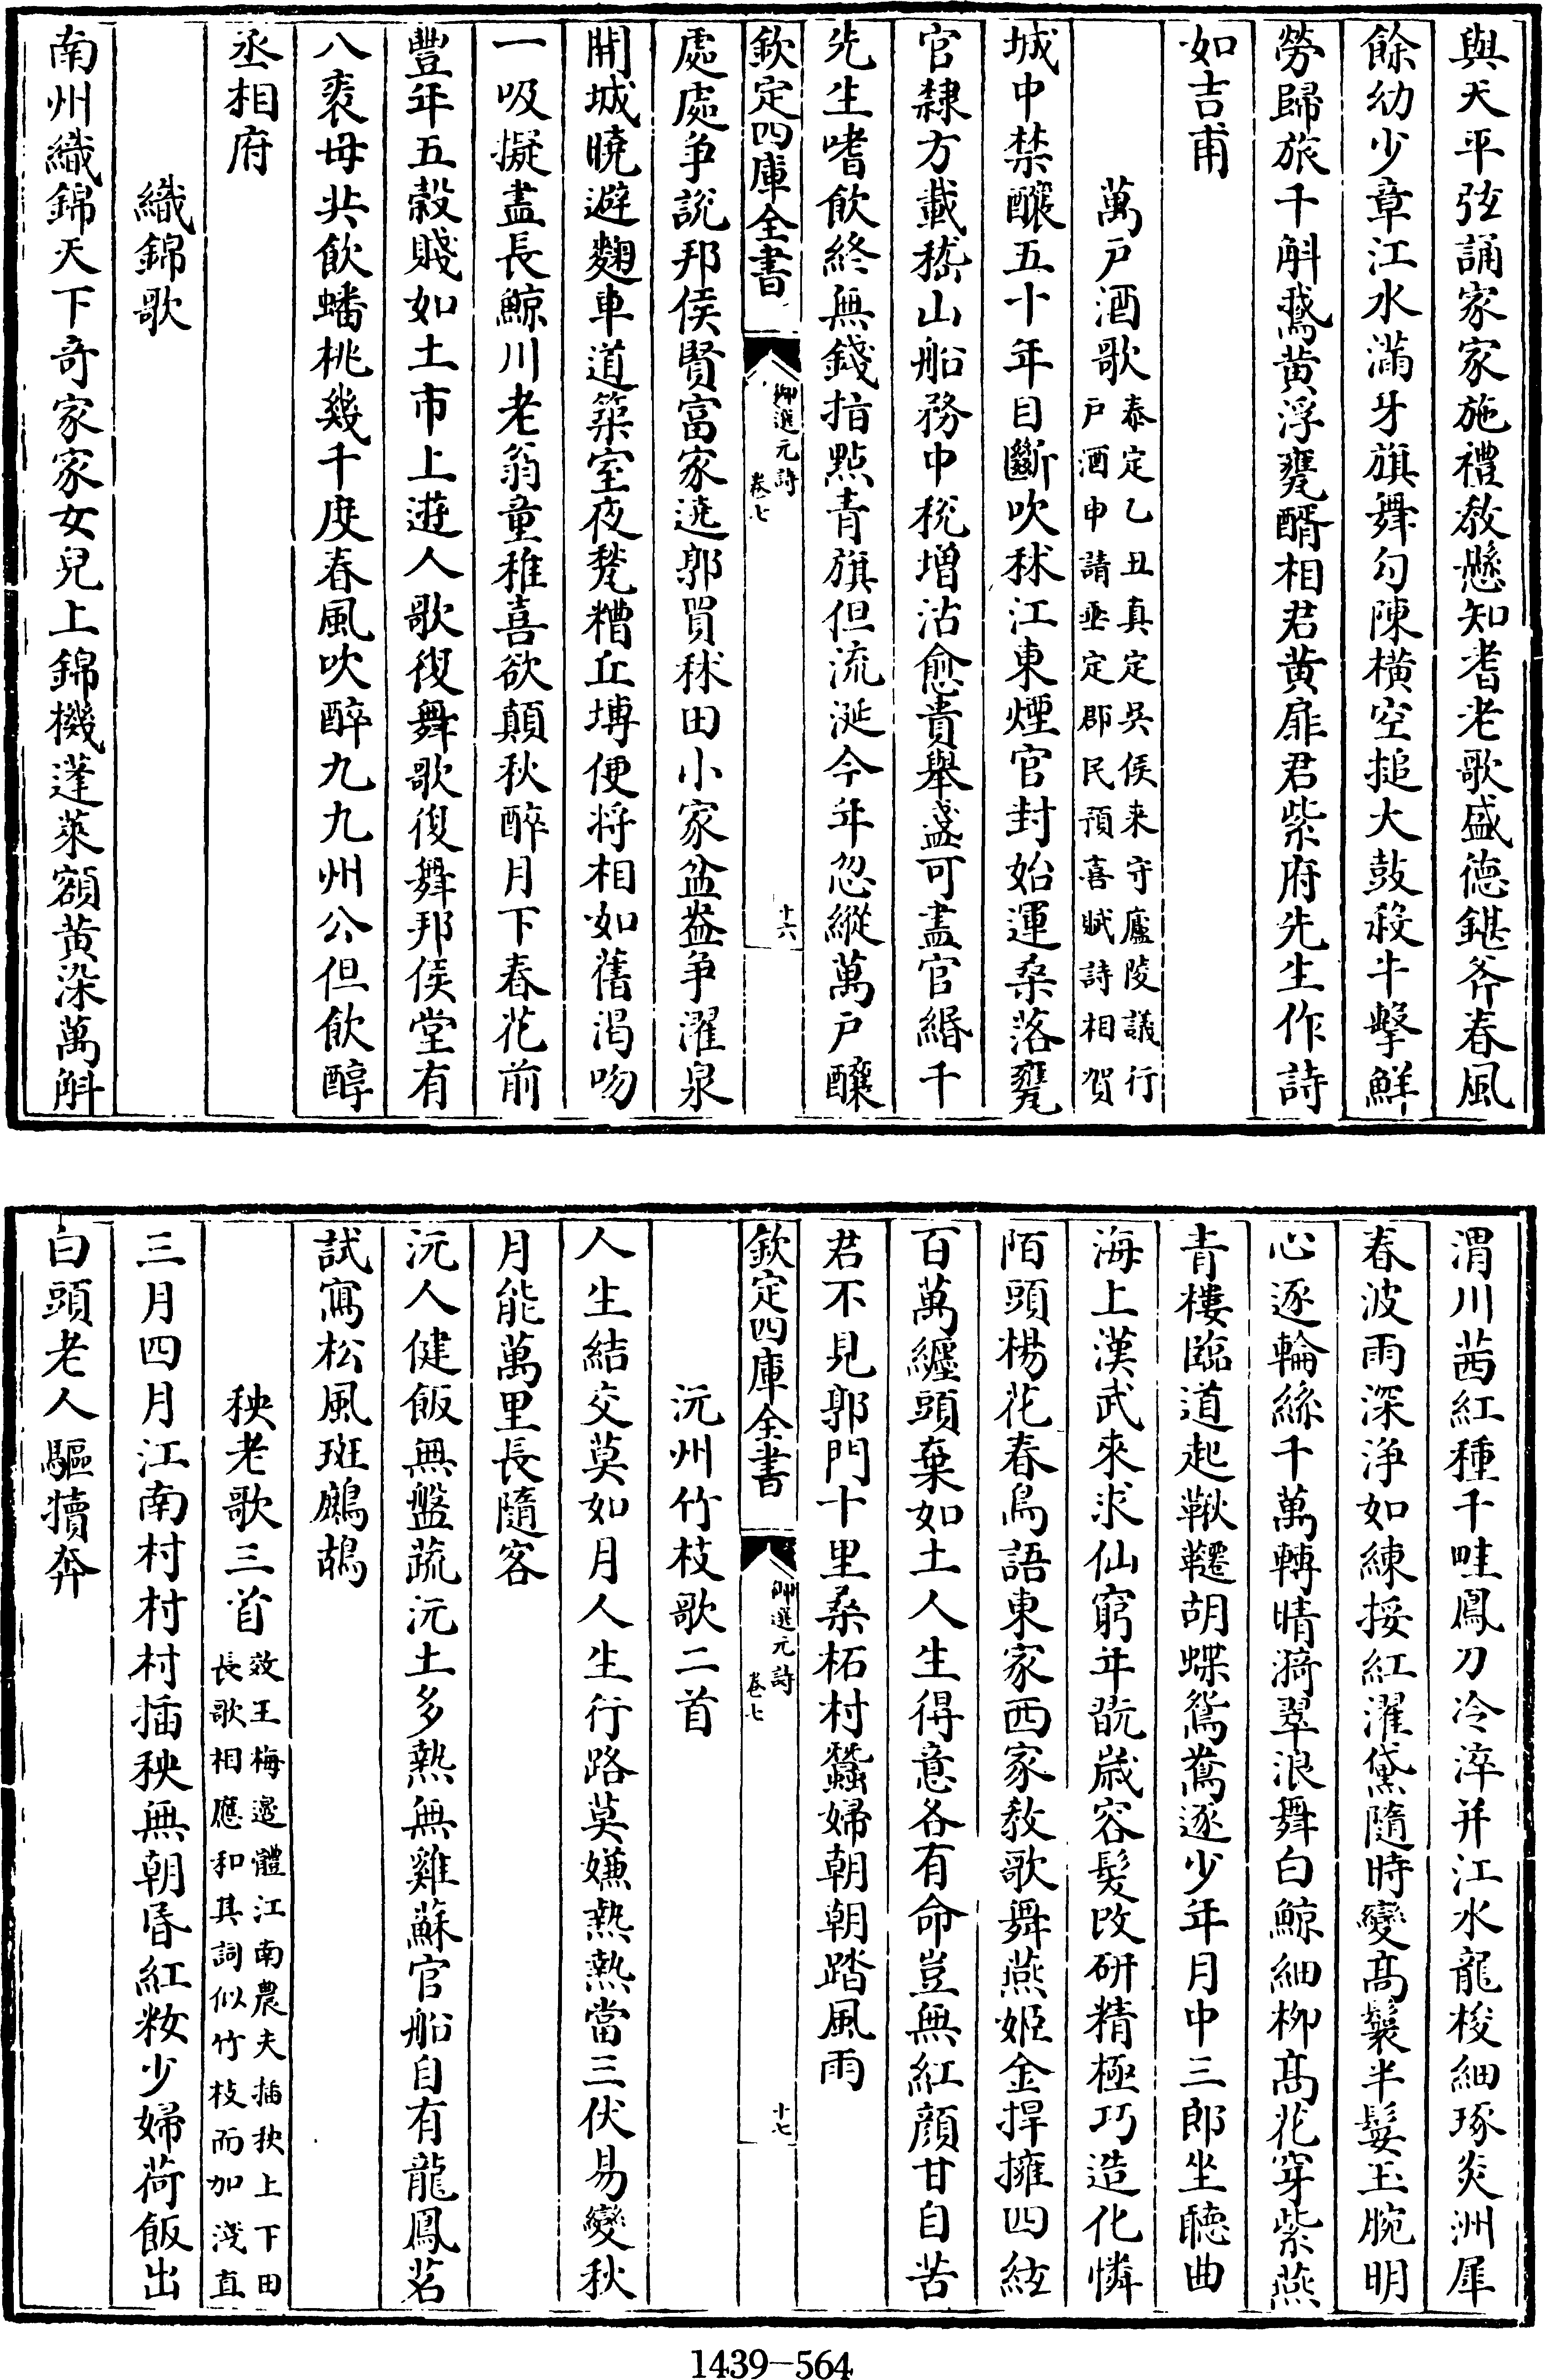 與天平弦誦家家施禮教懸知耆老歌盛德鍖斧春風
餘幼少章江水滿牙旗舞勾陳橫空搥大鼓殺牛擊鮮
勞歸旅千斛鵞黄浮甕醑相君黄扉君紫府先生作詩
如吉甫
萬戸酒歌
泰定乙丑真定吳侯來守廬陵議行
戸酒申請亟定郡民預喜賦詩相賀
城中禁釀五十年目斷吹秫江東煙官封始運桑落甕
官隸方載嵇山船務中稅增沽愈貴舉盞可盡官緡千
先生嗜飲終無錢指點青旗但流涎今年忽縱萬戸釀
欽定四庫全書
御選元詩
卷七
十六
處處争說邦侯賢富家遶郭買秫田小家盆盎争濯泉
開城曉避麴車道築室夜甃糟丘塼便將相如舊渴吻
一吸擬盡長鯨川老翁童稚喜欲顛秋醉月下春花前
豐年五榖賤如土市上遊人歌復舞歌復舞邦侯堂有
八袠母共飲蟠桃幾千度春風吹醉九九州公但飲醇
丞相府
織錦歌
南州織錦天下奇家家女兒上錦機蓬萊額黄染萬斛
渭川茜紅種千畦鳳刀冷淬并江水龍梭細琢炎洲犀
春波雨深浄如練挼紅濯黛隨時變髙鬟半鬘玉腕明
心逐輪絲千萬轉晴漪翠浪舞白鯨細柳髙花穿紫燕
青樓臨道起鞦韆胡蝶鴛鴦逐少年月中三郎坐聽曲
海上漢武來求仙窮年翫嵗容髮改研精極巧造化憐
陌頭楊花春鳥語東家西家教歌舞燕姬金捍擁四紘
百萬纏頭棄如土人生得意各有命豈無紅顔甘自苦
君不見郭門十里桑柘村蠶婦朝朝踏風雨
欽定四庫全書
御選元詩
卷七
十七
沅州竹枝歌二首
人生結交莫如月人生行路莫嫌熱熱當三伏易變秋
月能萬里長隨客
沅人健飯無盤蔬沅土多熱無雞蘇官船自有龍鳳茗
試寫松風斑鷓鴣
秧老歌三首
效王梅邊體江南農夫插秧上下田
長歌相應和其詞似竹枝而加淺直
三月四月江南村村村插秧無朝昏紅籹少婦荷飯出
白頭老人驅犢奔
1439-564